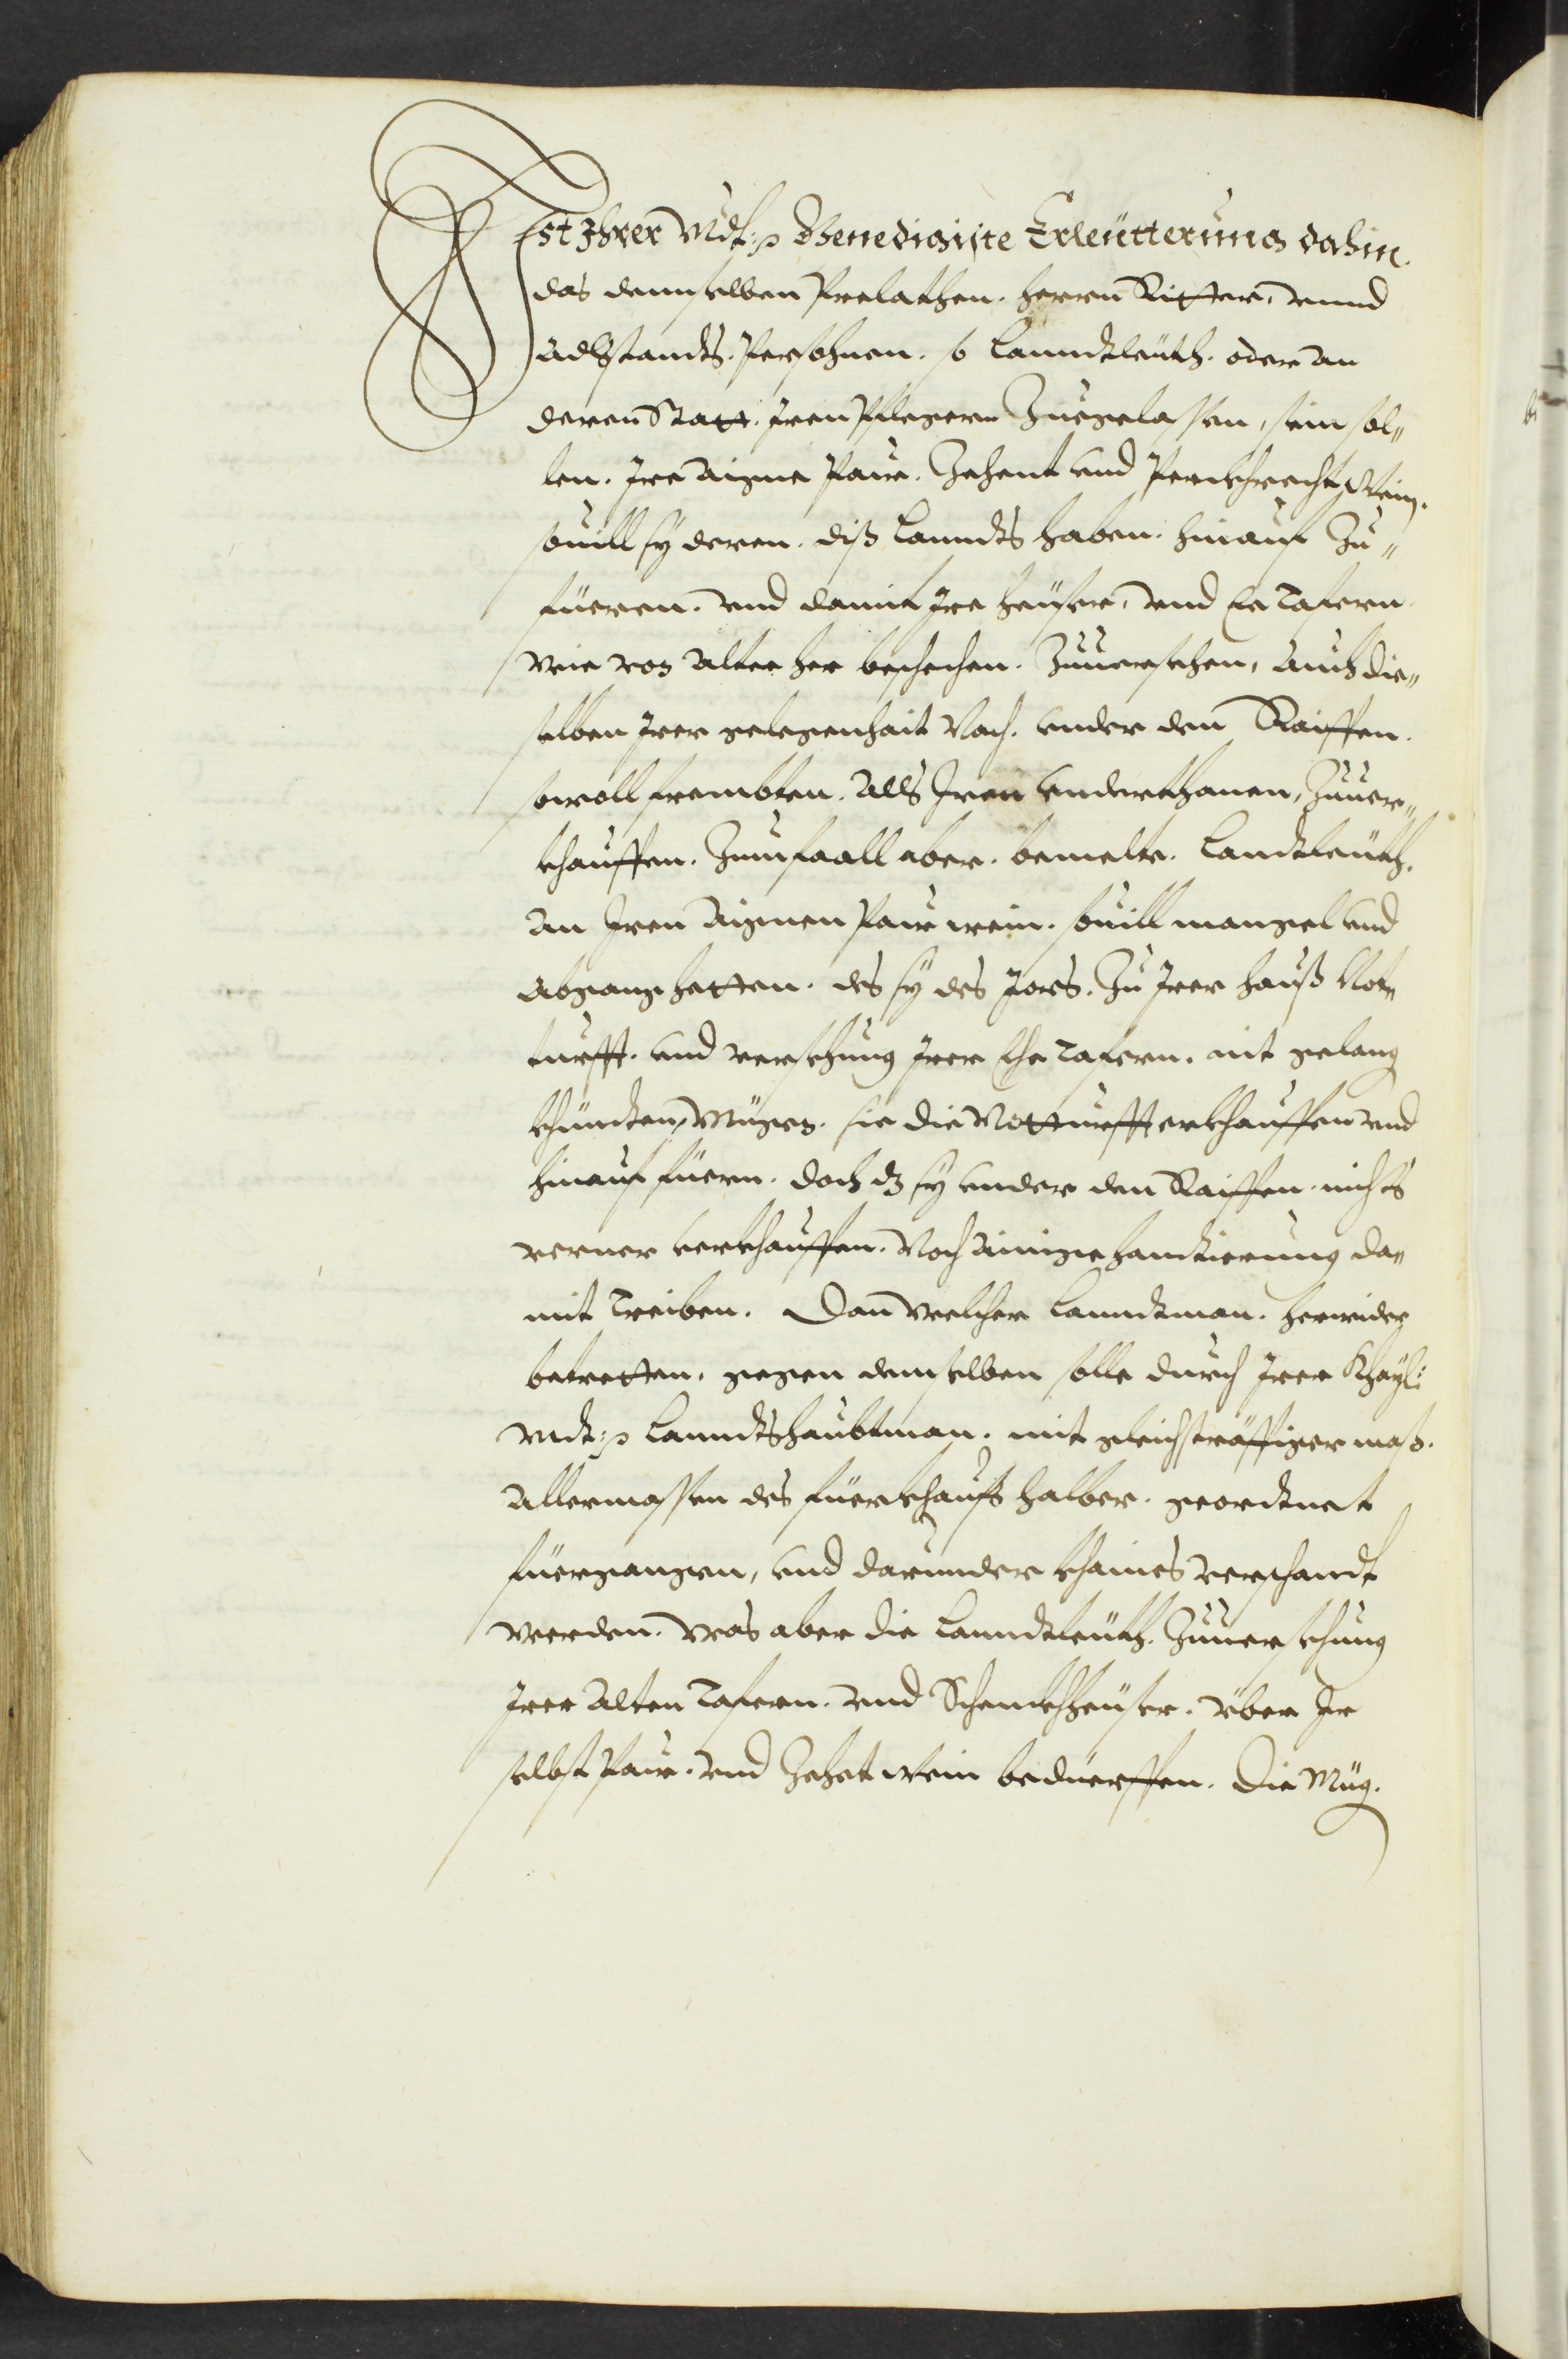 Ist Ihrer Mdt: Genedigiste Erleütterung dahin.
das demselben Prelathen. Herrn Ritter, vnnd
Adlstandts. Persohnen. so Lanndtleüth. oder an
deren Statt. Iren Pflegern Zuegelassen, sein sol„
len. Ire aigne Paw. Zehent vnd Perckhrecht Wein.
souill sy deren. diß Lanndts haben. hinauf Zu„
füeren. vnd damit Ire heüser, vnd Ee Tafern
wie von Alter her beschechen. Zuuersehen, auch die„
selben Irer gelegenhait Nach. vnder den Raiffen.
sowoll frembten. Alls Iren vnderthanen, Zuuer„
khauffen. Zumfaall aber. bemelte. Landtleüth.
An Iren Aignen Paw wein. souill mangel vnd
Abgang hetten. des sy des Jars. Zu Irer hauß Not„
turfft. vnd versehung Irer Ehe Tafern. nit gelang
khündten, Mügen. sie die Notturfft erkhauffen vnd
hinauf füern. doch dz sy vnder den Raiffen nichts
verner verkhauffen. Noch Ainige handtierung da„
mit Treiben. Dan welcher Lanndtman. herwider
betretten. gegen demselben solle durch Irer Khayl:
Mdt: Lanndtshaubtman. mit gleichsträffiger maß.
Allermassen des füerkhauffs halber. geordtnet
füergangen, vnd darunder khaines verschandt
werden. Was aber die Lanndtleüth. Zuuersehung
Irer Alten Tafern. vnd Schenckhheüser. vber Ir
selbst Paw. vnd Zehet wein bedüerffen. Die Müg.